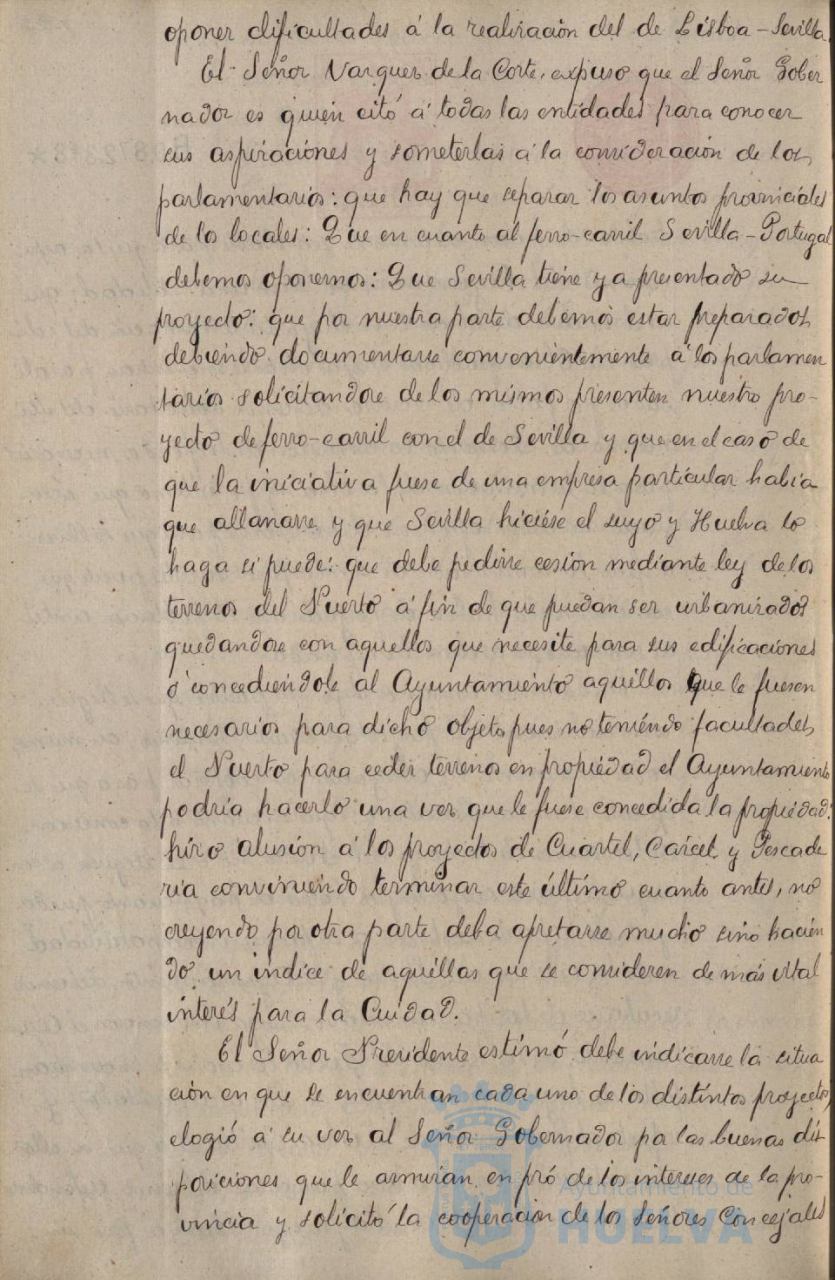 oponer dificultades á la realización del de Lisboa-Sevilla
El Señor Vazquez de la Corte, expuso que el Señor Gober
nador es quien citó á todas las entidades para conocer
sus aspiraciones y someterlas á la consideración de los
parlamentarios: que hay que separar los asuntos provinciales
de los locales: Que en cuanto al ferro-carril Sevilla-Portugal
debemos oponernos: Que Sevilla tiene ya presentado su
proyecto: que por nuestra parte debemos estar preparados
debiendo documentarse convenientemente á los parlamen
tarios solicitandose de los mismos presenten nuestro pro-
yecto de ferro-carril con el de Sevilla y que en el caso de
que la iniciativa fuese de una empresa particular habia
que allanarse y que Sevilla hiciése el suyo y Huelva lo
haga si puede: que debe pedirse cesion mediante ley de los
terrenos del Puerto á fin de que puedan ser urbanizados
quedandose con aquellos que necesite para sus edificaciones
ó concediéndole al Ayuntamiento aquillos que le fuesen
necesarios para dicho objeto, pues no teniéndo facultades
el Puerto para ceder terrenos en propiedad el Ayuntamiento
podría hacerlo una vez que le fuese concedida la propiedad:
hizo alusión á los proyectos de Cuartel, Cárcel y Pescade
ria conviniendo terminar este último cuanto antes, no
creyendo por otra parte deba apretarse mucho sino hacien
do un indice de aquéllas que se consideren de más vital
interés para la Ciudad.
El Señor Presidente estimó debe indicarse la situa
ción en que se encuentran cada uno de los distintos proyectos,
elogió á su vez al Señor Gobernador por las buenas dis
posiciones que le animan en pró de los intereses de la pro-
vincia y solicitó la cooperación de los Señores Concejales
Ayuntamiento de
HUELVA